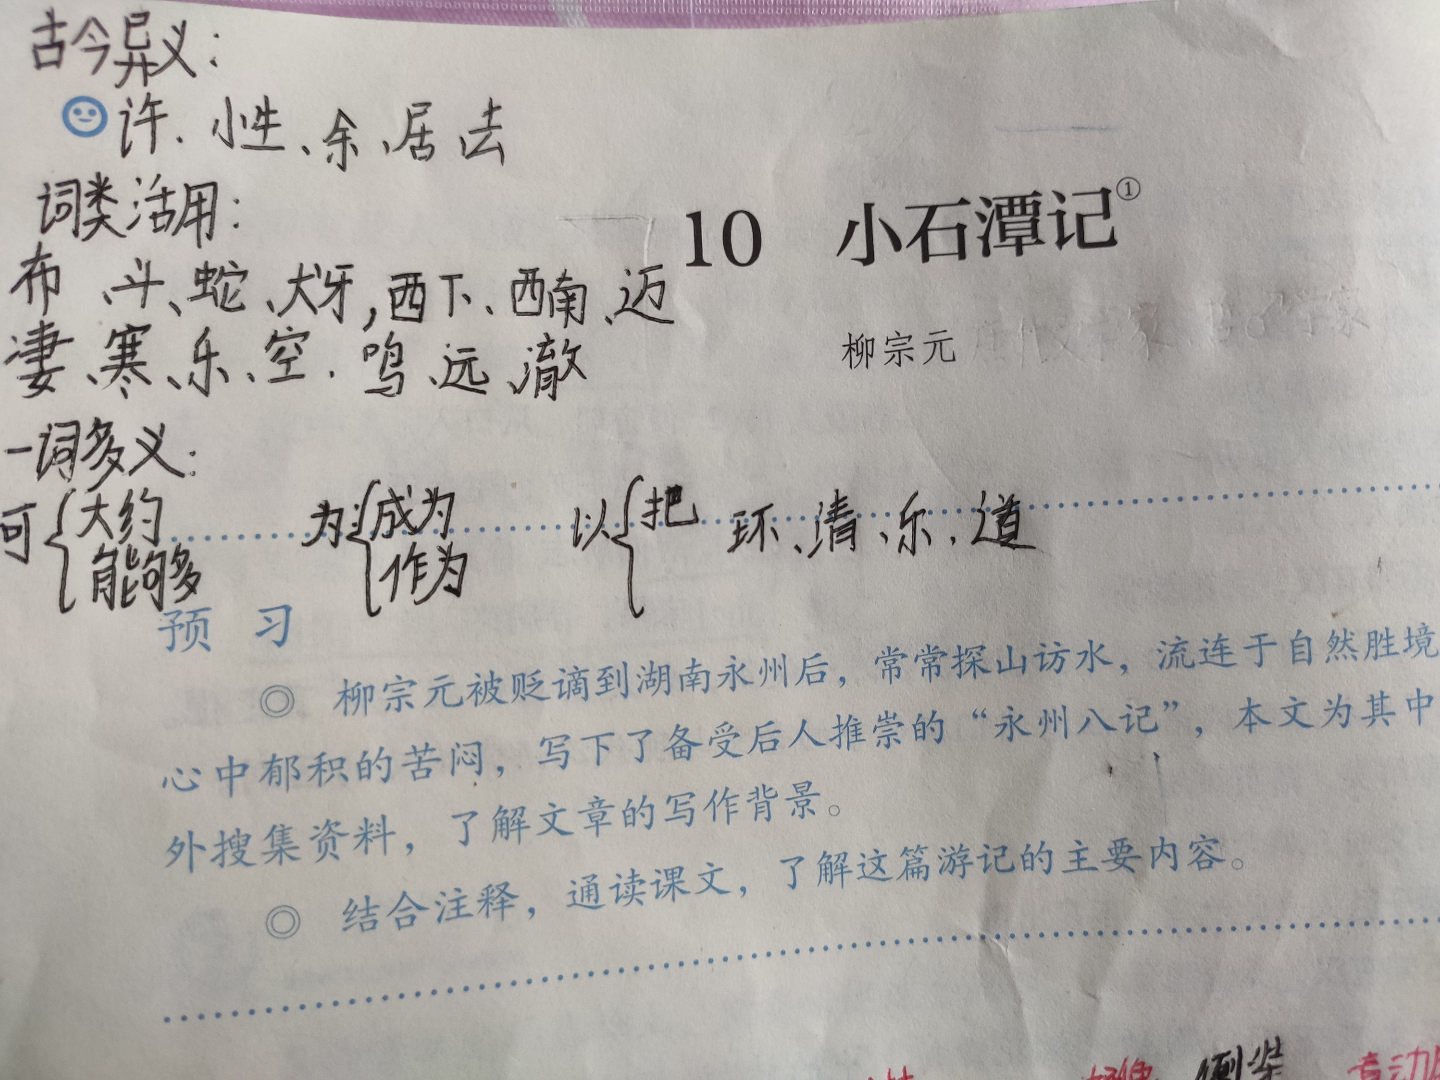 古今异义：
许、小生、余、居、去
词类活用：
布、斗、蛇、犬牙,西下、西南、迈
凄、寒、乐、空、鸣、远、澈
10 小石潭记①
柳宗元
一词多义：
可{大约
能够
为{成为
作为
以{把
环、清、乐、道
预 习
◎ 柳宗元被贬谪到湖南永州后，常常探山访水，流连于自然胜境
心中郁积的苦闷，写下了备受后人推崇的“永州八记”，本文为其中
外搜集资料，了解文章的写作背景。
◎ 结合注释，通读课文，了解这篇游记的主要内容。